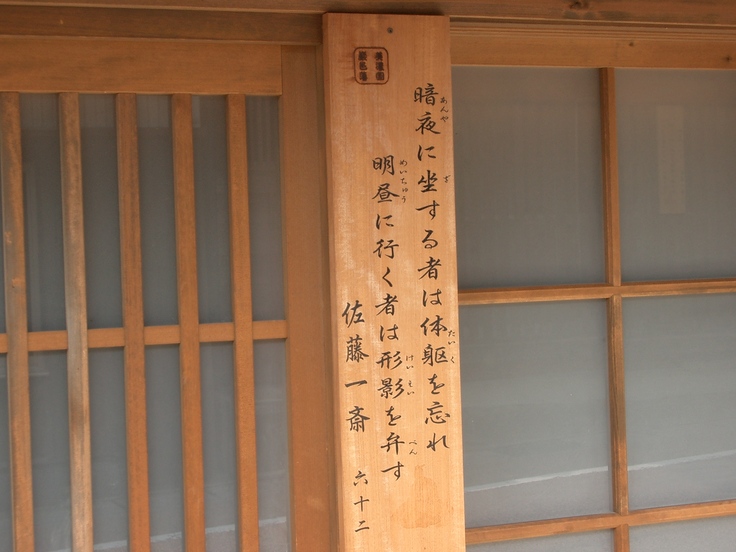 暗夜に坐する者は体躯を忘れ
明昼に行く者は形影を弁す
佐藤一斎
六十二